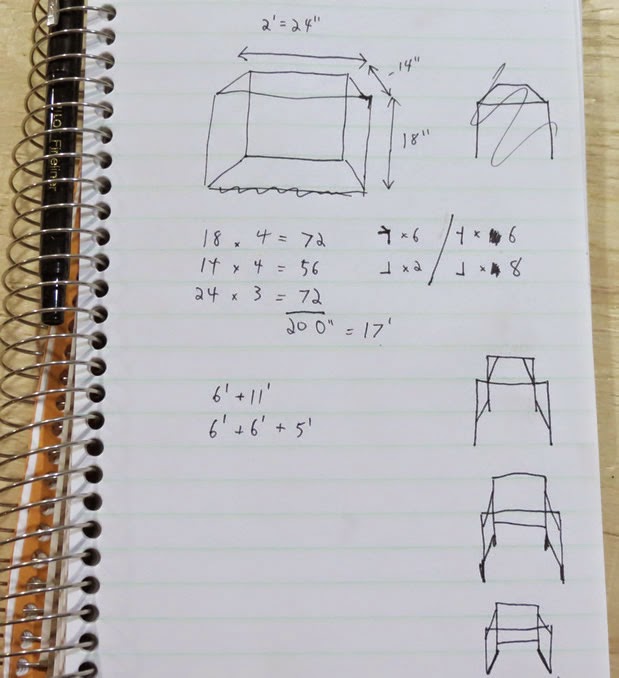 2' = 24"
14"
18"
18 × 4 = 72
14 × 4 = 56
24 × 3 = 72
200" = 17'
4 × 6 / 4 × 6
1 × 2 / 1 × 8
6' + 11'
6' + 6' + 5'
Fineliner